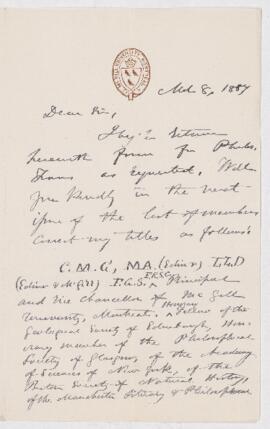 McGILL UNIVERSITY MONTREAL
Mch 8, 1887
Dear Sir,
I beg to return
herewith form for Philos.
Trans as requested. Will
you kindly in the next
issue of the list of members
correct my titles as follows:
C.M.G., M.A. (Edin &) LL.D
(Edin & McGill) F.G.S., F.R.S.C. Principal
and Vice Chancellor of McGill
University, Montreal. Honorary Fellow of the
Geological Society of Edinburgh, Hon-
orary member of the Philosophical
Society of Glasgow, of the Academy
of Sciences of New York, of the
Boston Society of Natural History,
of the Manchester Literary & Philosophical